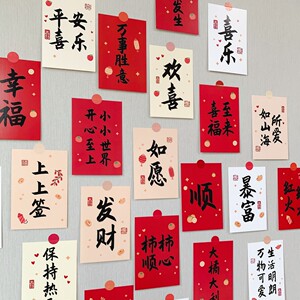 平安
喜乐
万事
胜意
发生
喜
乐
幸
福
小小世界
开心至上
欢
喜
至未
喜福
所爱
如山海
上上签
如愿
发财
顺
暴富
保持热
柿柿
顺心
大橘大利
生活明朗
万物可爱